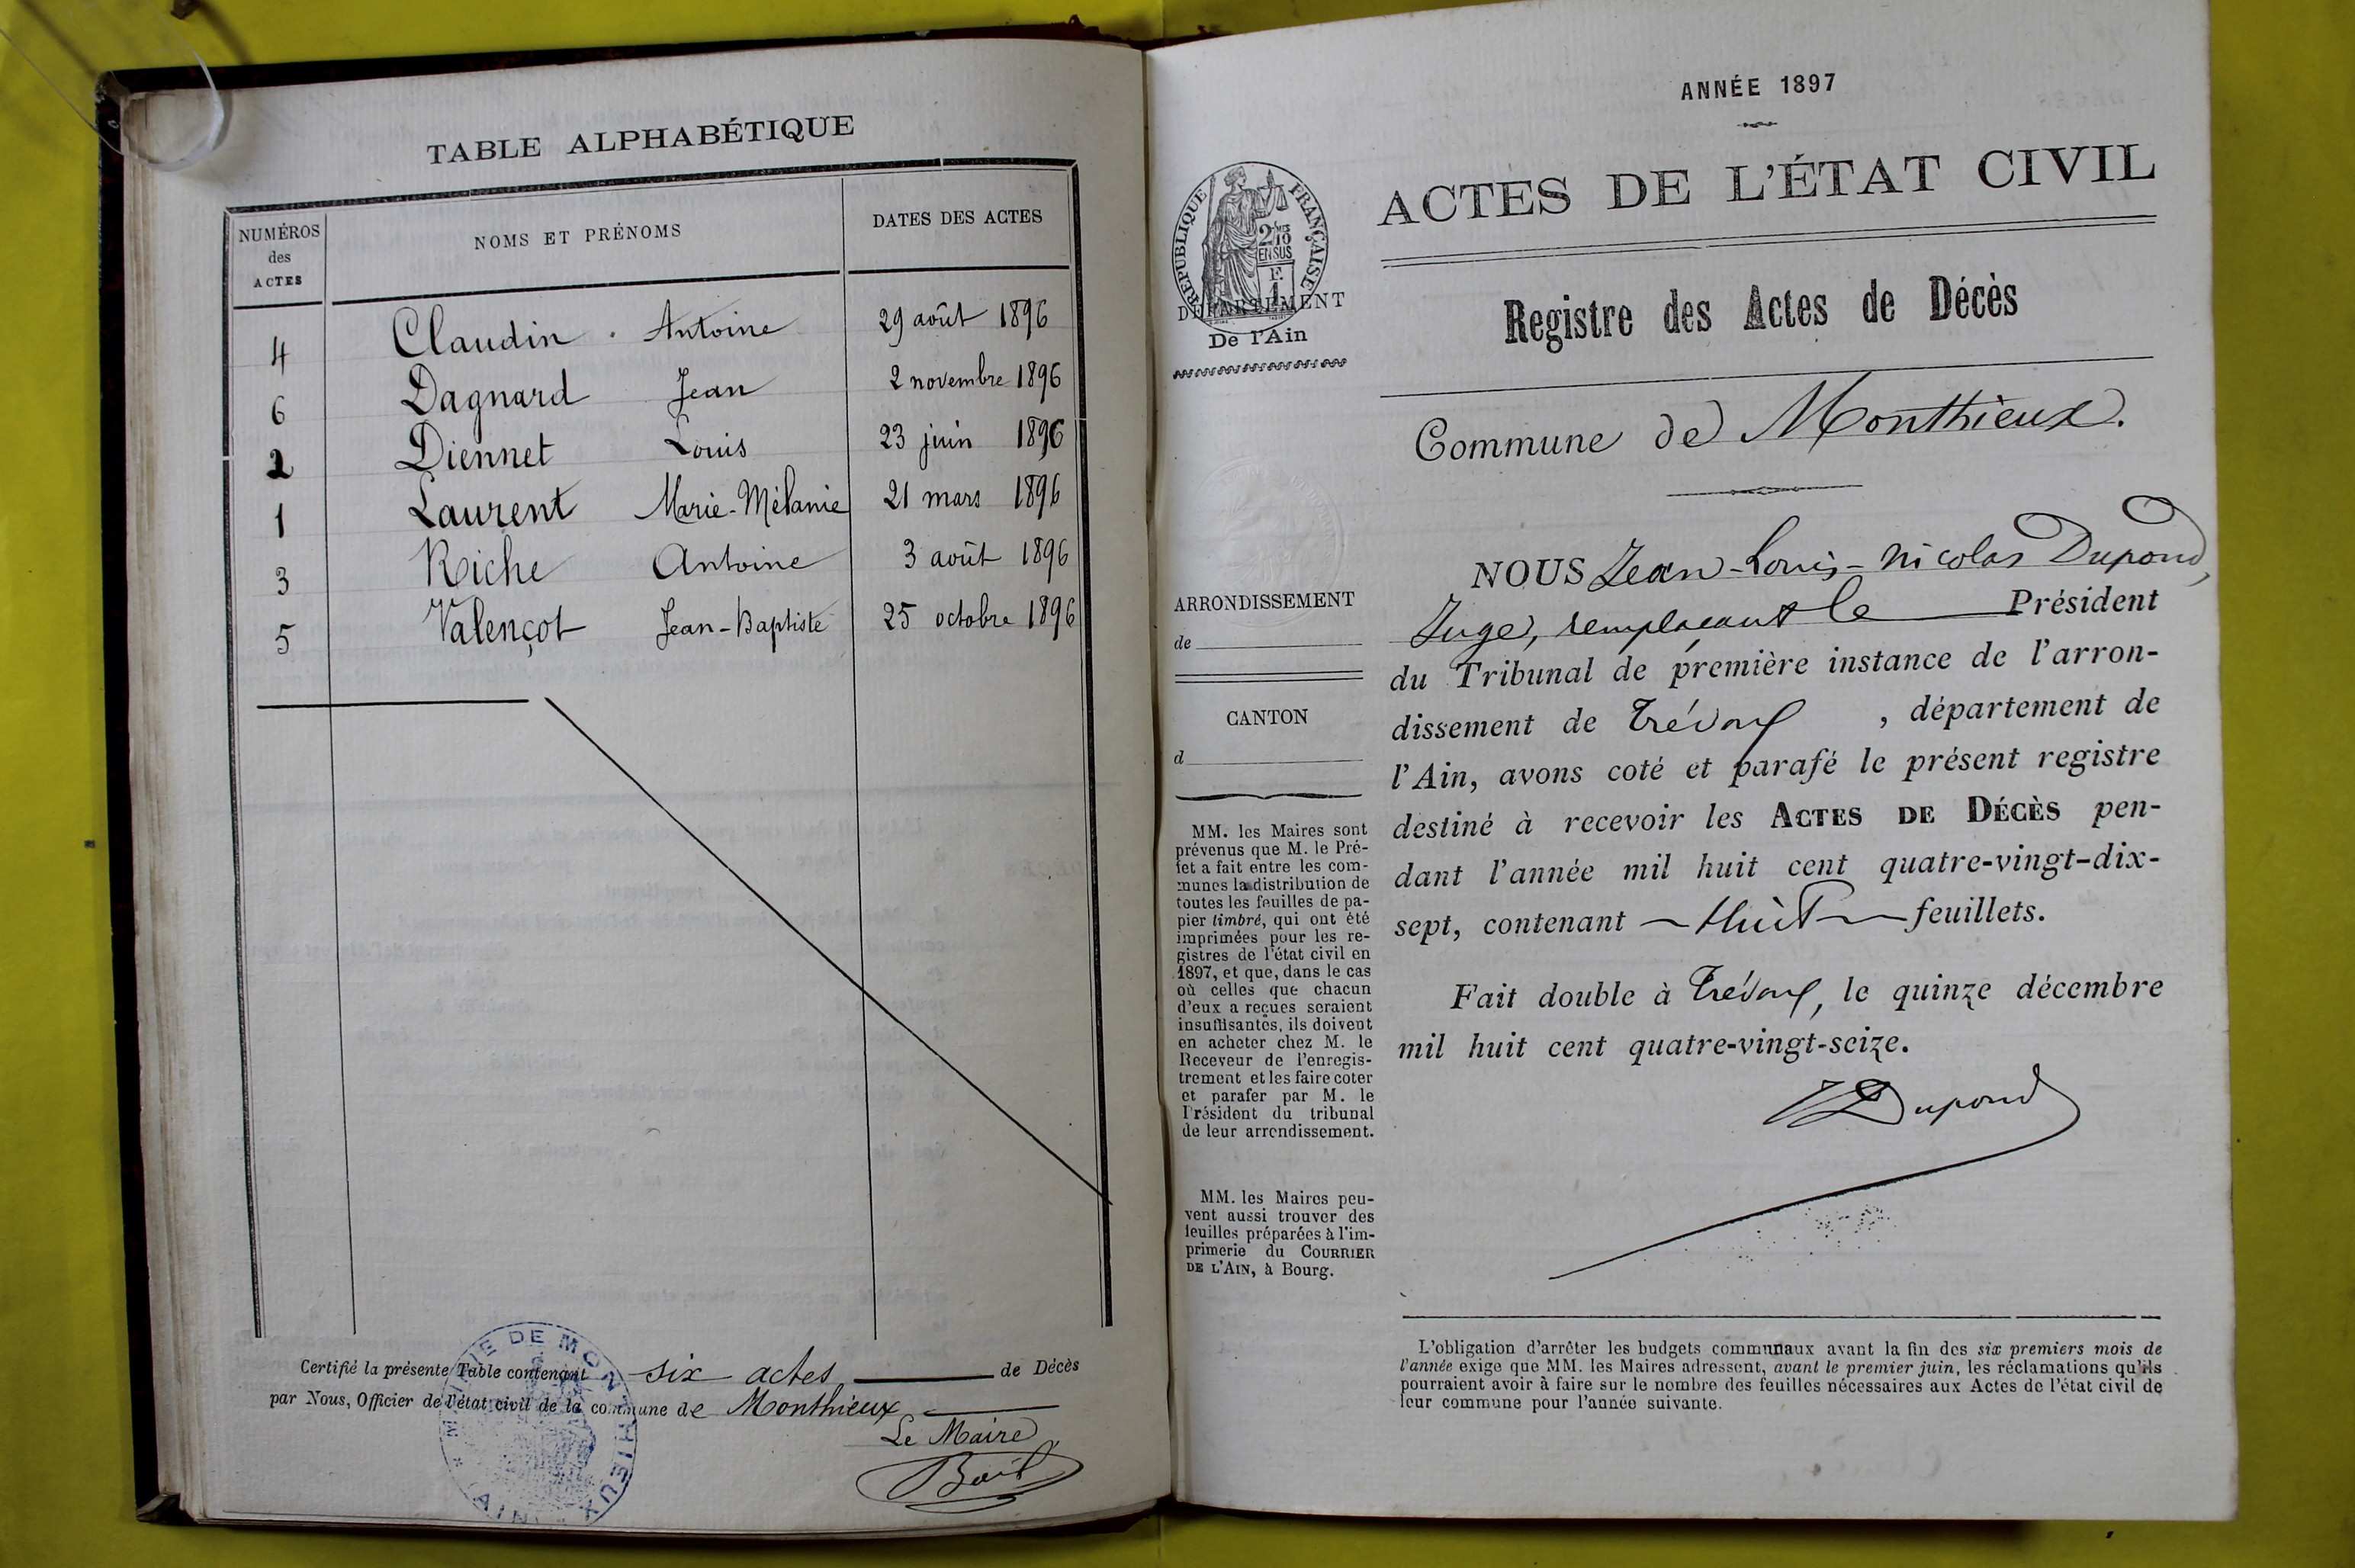 TABLE ALPHABÉTIQUE
NUMÉROS des ACTES
NOMS ET PRÉNOMS
DATES DES ACTES
4 Claudin Antoine 29 août 1896
6 Dagnard Jean 2 novembre 1896
2 Diennet Louis 23 juin 1896
1 Laurent Marie-Mélanie 21 mars 1896
3 Riche Antoine 3 août 1896
5 Valençot Jean-Baptiste 25 octobre 1896
Certifié la présente Table contenant six actes de Décès
par Nous, Officier de l'état civil de la commune de Monthieux
Le Maire
MAIRIE DE MONTHIEUX
* (AIN) *
ANNÉE 1897
RÉPUBLIQUE FRANÇAISE
2/10
EN SUS
F.
1
DÉPARTEMENT
De l'Ain
ACTES DE L'ÉTAT CIVIL
Registre des Actes de Décès
Commune de Monthieux.
ARRONDISSEMENT
de
CANTON
d
MM. les Maires sont
prévenus que M. le Pré-
fet a fait entre les com-
munes la distribution de
toutes les feuilles de pa-
pier timbré, qui ont été
imprimées pour les re-
gistres de l'état civil en
1897, et que, dans le cas
où celles que chacun
d'eux a reçues seraient
insuffisantes, ils doivent
en acheter chez M. le
Receveur de l'enregis-
trement et les faire coter
et parafer par M. le
Président du tribunal
de leur arrondissement.
MM. les Maires peu-
vent aussi trouver des
feuilles préparées à l'im-
primerie du COURRIER
DE L'AIN, à Bourg.
NOUS Jean-Louis-Nicolas Dupond,
Juge, remplaçant le Président
du Tribunal de première instance de l'arron-
dissement de Trévoux, département de
l'Ain, avons coté et parafé le présent registre
destiné à recevoir les ACTES DE DÉCÈS pen-
dant l'année mil huit cent quatre-vingt-dix-
sept, contenant Huit feuillets.
Fait double à Trévoux, le quinze décembre
mil huit cent quatre-vingt-seize.
Dupond
L'obligation d'arrêter les budgets communaux avant la fin des six premiers mois de
l'année exige que MM. les Maires adressent, avant le premier juin, les réclamations qu'ils
pourraient avoir à faire sur le nombre des feuilles nécessaires aux Actes de l'état civil de
leur commune pour l'année suivante.